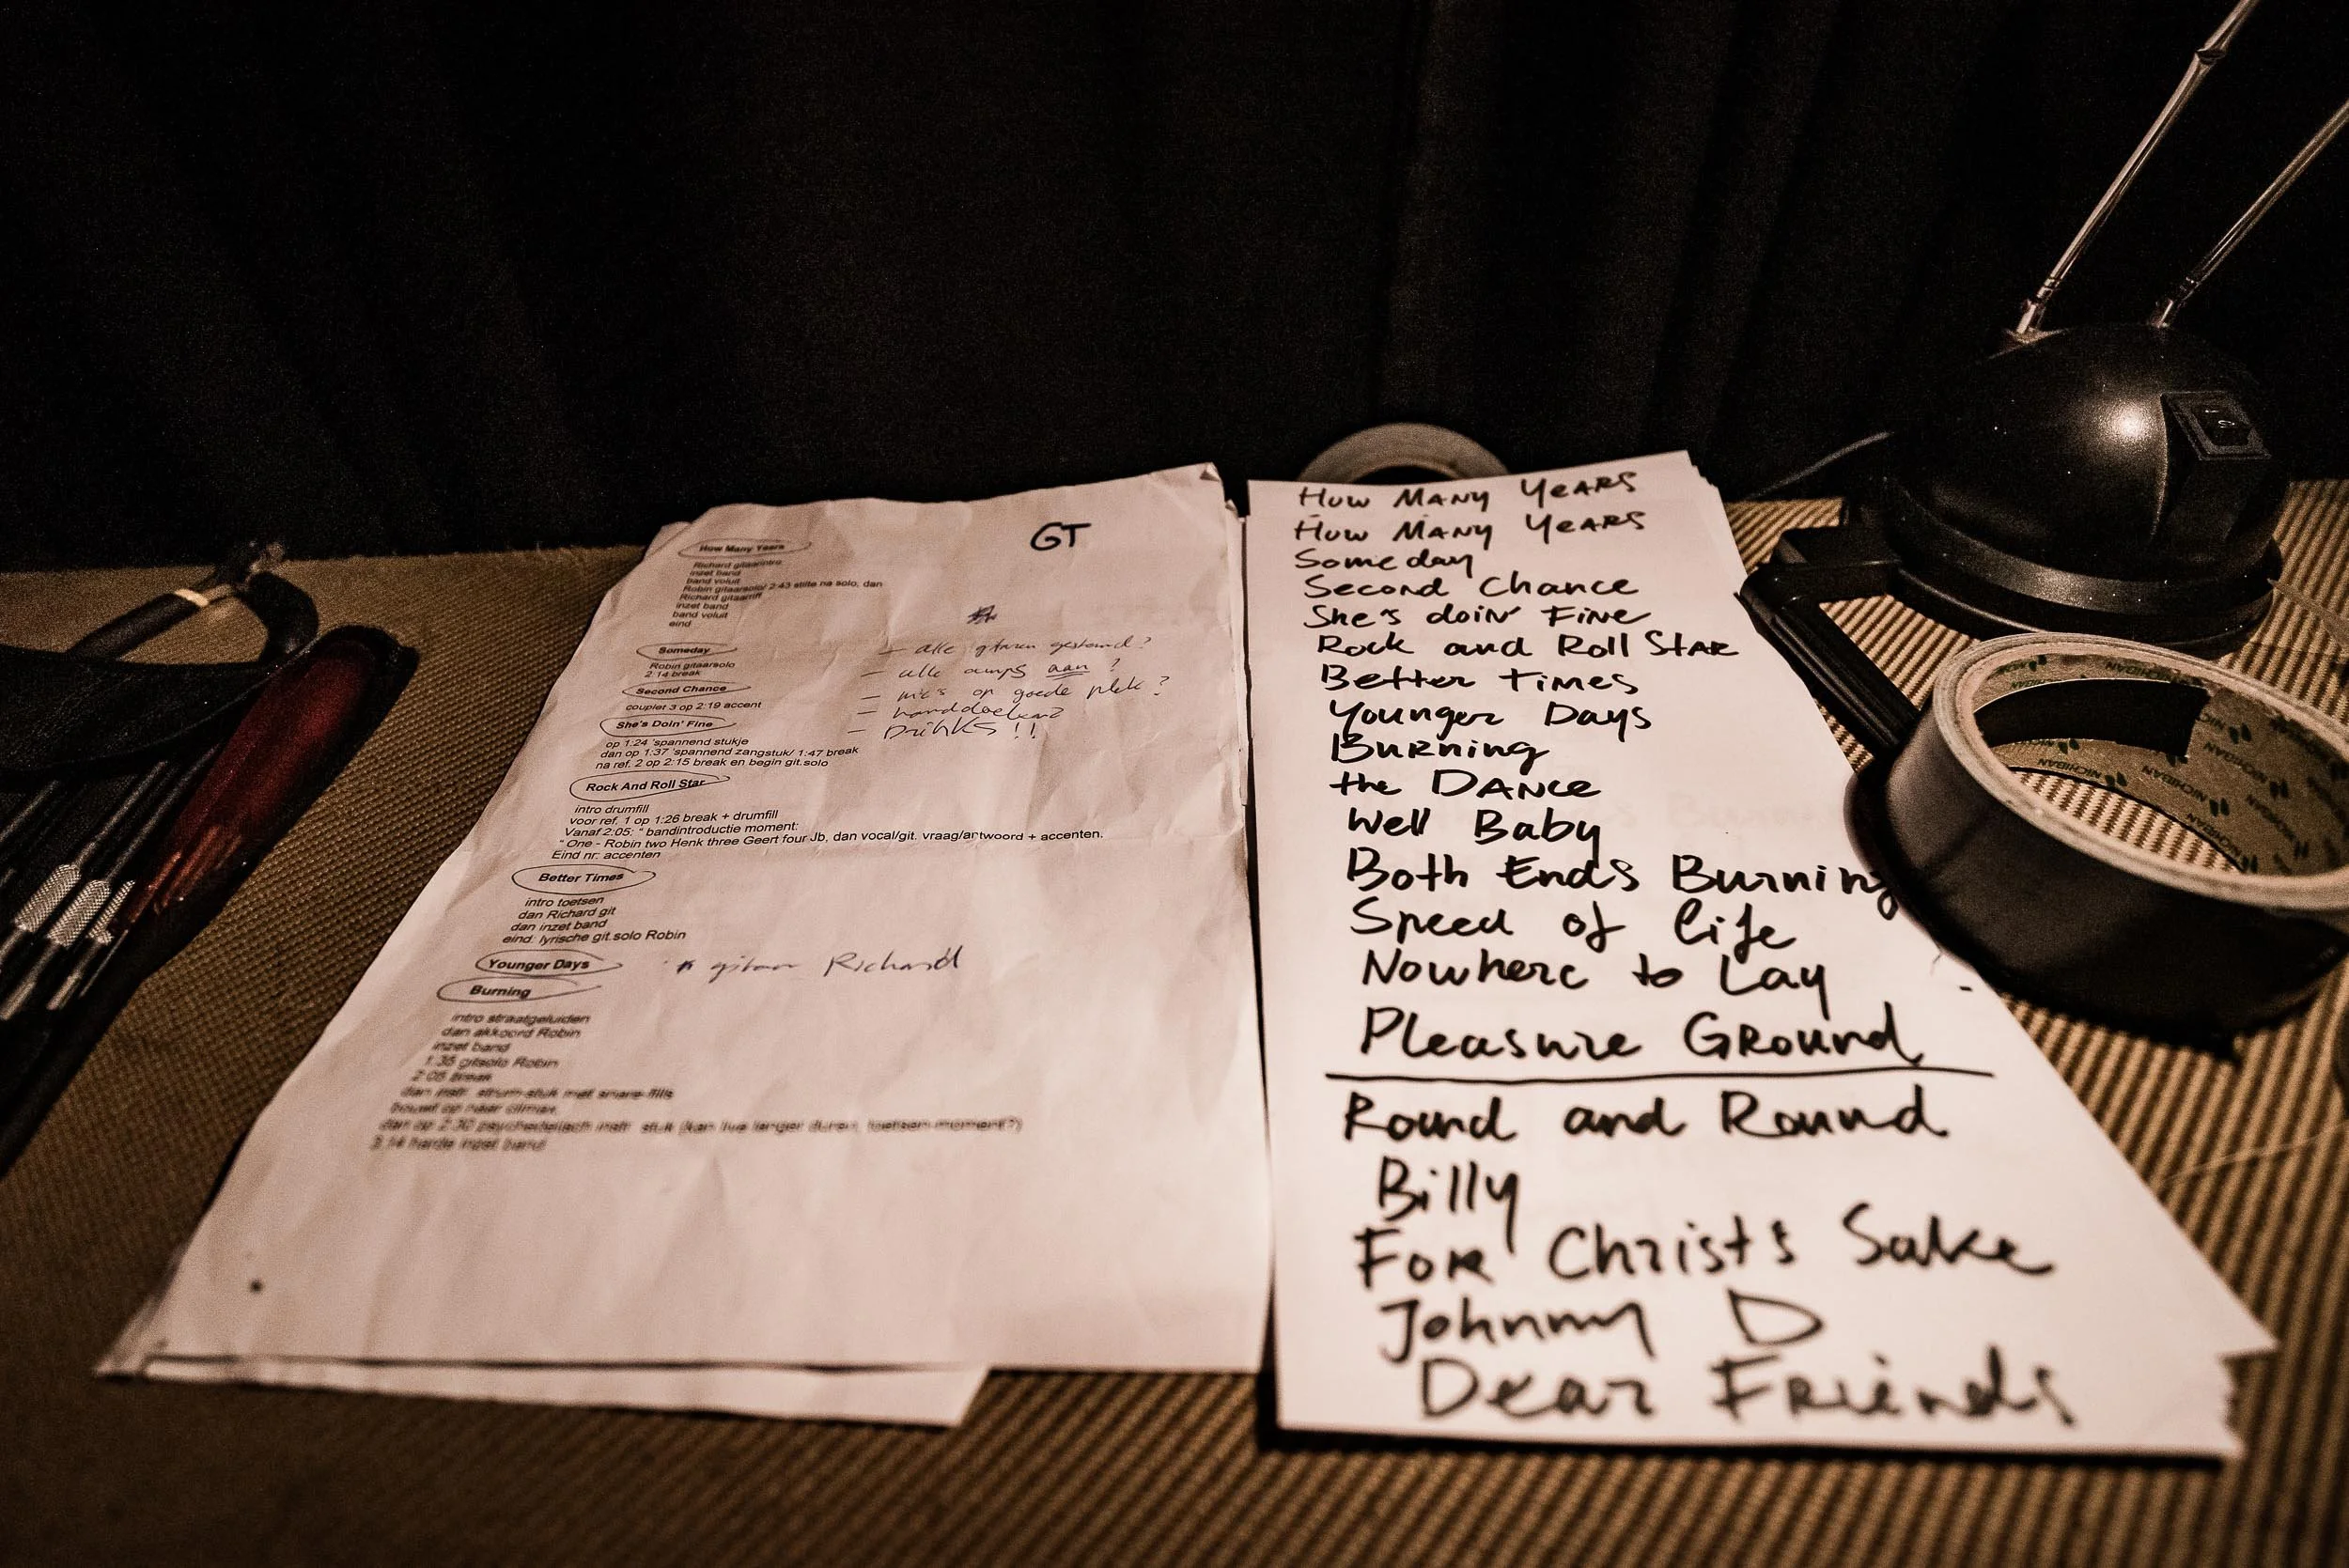 GT
How Many Years
Richard gitaarintro
inzet band
band voluit
Robin gitaarsolo/ 2:43 stilte na solo, dan
Richard gitaarriff
inzet band
band voluit
eind
Someday
Robin gitaarsolo
2:14 break
Second Chance
couplet 3 op 2:19 accent
She's Doin' Fine
op 1:24 'spannend stukje
dan op 1:37 'spannend zangstuk/ 1:47 break
na ref. 2 op 2:15 break en begin git.solo
Rock And Roll Star
intro drumfill
voor ref. 1 op 1:26 break + drumfill
Vanaf 2:05: " bandintroductie moment:
" One - Robin two Henk three Geert four Jb, dan vocal/git. vraag/antwoord + accenten.
Eind nr: accenten
Better Times
intro toetsen
dan Richard git
dan inzet band
eind: lyrische git.solo Robin
Younger Days
* gitaar Richard
Burning
intro straatgeluiden
dan akkoord Robin
inzet band
1:35 gitsolo Robin
2:05 break
dan instr. strum-stuk met snare-fills
bouwt op naar climax
dan op 2:30 psychedelisch instr. stuk (kan live langer duren, toetsen-moment?)
3:14 harde inzet band
- alle gitaren gestemd?
- alle amps aan ?
- mic's op goede plek ?
- handdoeken?
- Drinks !!
How Many Years
How Many Years
Someday
Second Chance
She's doin' Fine
Rock and Roll Star
Better Times
Younger Days
Burning
the DANCE
Well Baby
Both Ends Burning
Speed of life
Nowhere to Lay
Pleasure Ground
Round and Round
Billy
For Christ's Sake
Johnny D
Dear Friends
MICHIGAN MICHIGAN MICHIGAN
MICHIGAN MICHIGAN MICHIGAN